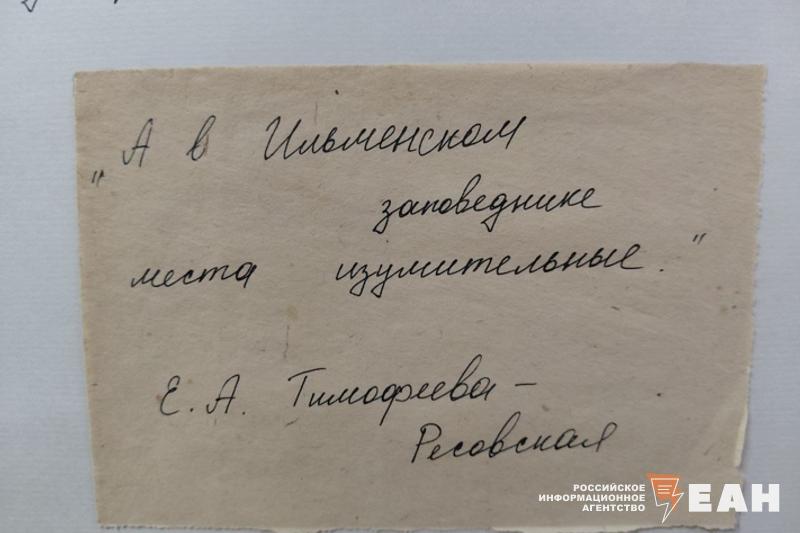 „А в Ильменском
заповеднике
места изумительные."
Е. А. Тимофеева-
Ресовская
РОССИЙСКОЕ
ИНФОРМАЦИОННОЕ
АГЕНТСТВО
ЕАН